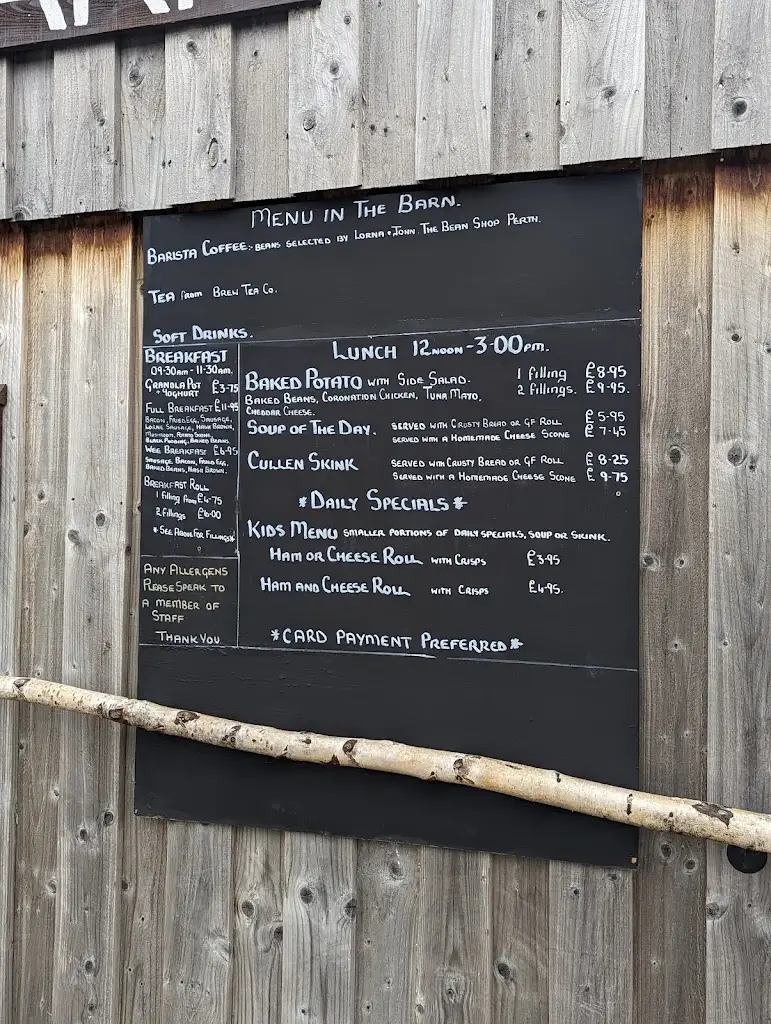 MENU IN THE BARN.
BARISTA COFFEE:- BEANS SELECTED BY LORNA + JOHN. THE BEAN SHOP PERTH.
TEA from BREW TEA CO.
SOFT DRINKS.
BREAKFAST
09.30am - 11.30am.
GRANOLA POT
+ YOGHURT £3-75
FULL BREAKFAST £11-95
BACON, FRIED EGG, SAUSAGE,
LORNE SAUSAGE, HASH BROWN,
MUSHROOM, POTATO SCONE,
BLACK PUDDING, BAKED BEANS.
WEE BREAKFAST £6-95
SAUSAGE, BACON, FRIED EGG,
BAKED BEANS, HASH BROWN.
BREAKFAST ROLL
1 filling from £4-75
2 fillings £6-00
*SEE ABOVE FOR FILLINGS*
ANY ALLERGENS
PLEASE SPEAK TO
A MEMBER OF
STAFF
THANK YOU
LUNCH 12NOON - 3-00pm.
BAKED POTATO WITH SIDE SALAD. 1 filling £8-95
2 fillings. £9-95.
BAKED BEANS, CORONATION CHICKEN, TUNA MAYO,
CHEDDAR CHEESE.
SOUP OF THE DAY. SERVED WITH CRUSTY BREAD OR GF ROLL £5-95
SERVED WITH A HOMEMADE CHEESE SCONE £7-45
CULLEN SKINK SERVED WITH CRUSTY BREAD OR GF ROLL £8-25
SERVED WITH A HOMEMADE CHEESE SCONE £9-75
*DAILY SPECIALS*
KIDS MENU SMALLER PORTIONS OF DAILY SPECIALS, SOUP OR SKINK.
HAM OR CHEESE ROLL WITH CRISPS £3-95
HAM AND CHEESE ROLL WITH CRISPS £4-95.
*CARD PAYMENT PREFERRED*